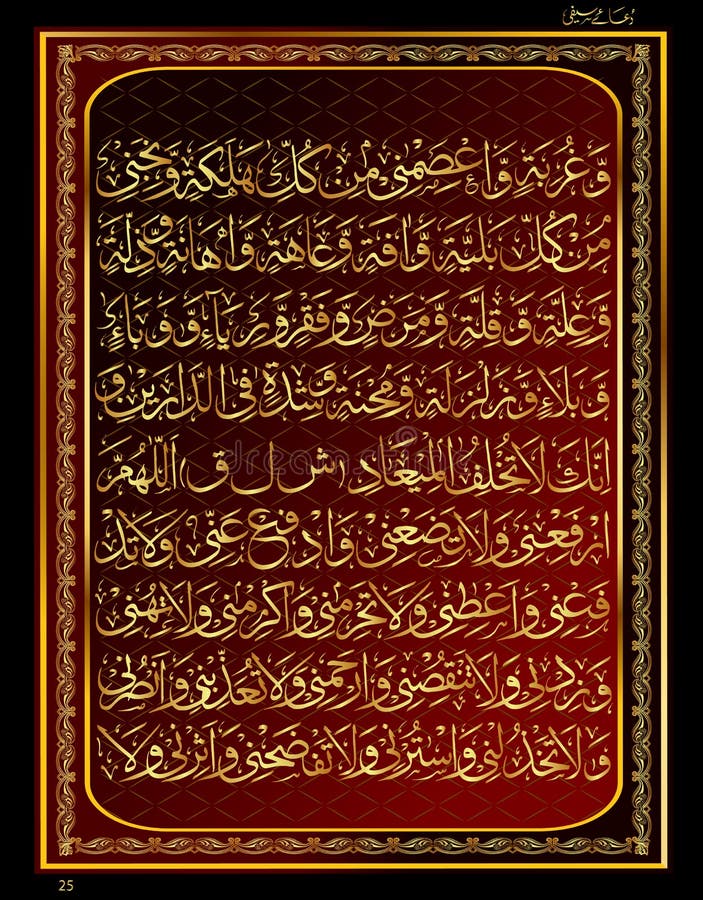 دُعائے سیفی
وَّغُرْبَةٍ وَّاعْصِمْنِىْ مِنْ كُلِّ هَلَكَةٍ وَّنَجِّنِىْ
مِنْ كُلِّ بَلِيَّةٍ وَّاٰفَةٍ وَّعَاهَةٍ وَّاِهَانَةٍ وَّذِلَّةٍ
وَّعِلَّةٍ وَّقِلَّةٍ وَّمَرَضٍ وَّفَقْرٍ وَّرِيَآءٍ وَّوَبَاءٍ
وَّبَلَاءٍ وَّزَلْزَلَةٍ وَّمِحْنَةٍ وَّشِدَّةٍ فِى الدَّارَيْنِ وَ
اِنَّكَ لَا تُخْلِفُ الْمِيْعَادِ (ش ل ق) اَللّٰهُمَّ
ارْفَعْنِىْ وَلَا تَضَعْنِىْ وَادْفَعْ عَنِّىْ وَلَا تَدْ
فَعْنِىْ وَاَعْطِنِىْ وَلَا تَحْرِمْنِىْ وَاَكْرِمْنِىْ وَلَا تُهِنِّىْ
وَزِدْنِىْ وَلَا تَنْقُصْنِىْ وَارْحَمْنِىْ وَلَا تُعَذِّبْنِىْ وَانْصُرْنِىْ
وَلَا تَخْذُلْنِىْ وَاسْتُرْنِىْ وَلَا تَفْضَحْنِىْ وَاٰثِرْنِىْ وَلَا
25
dreamstime